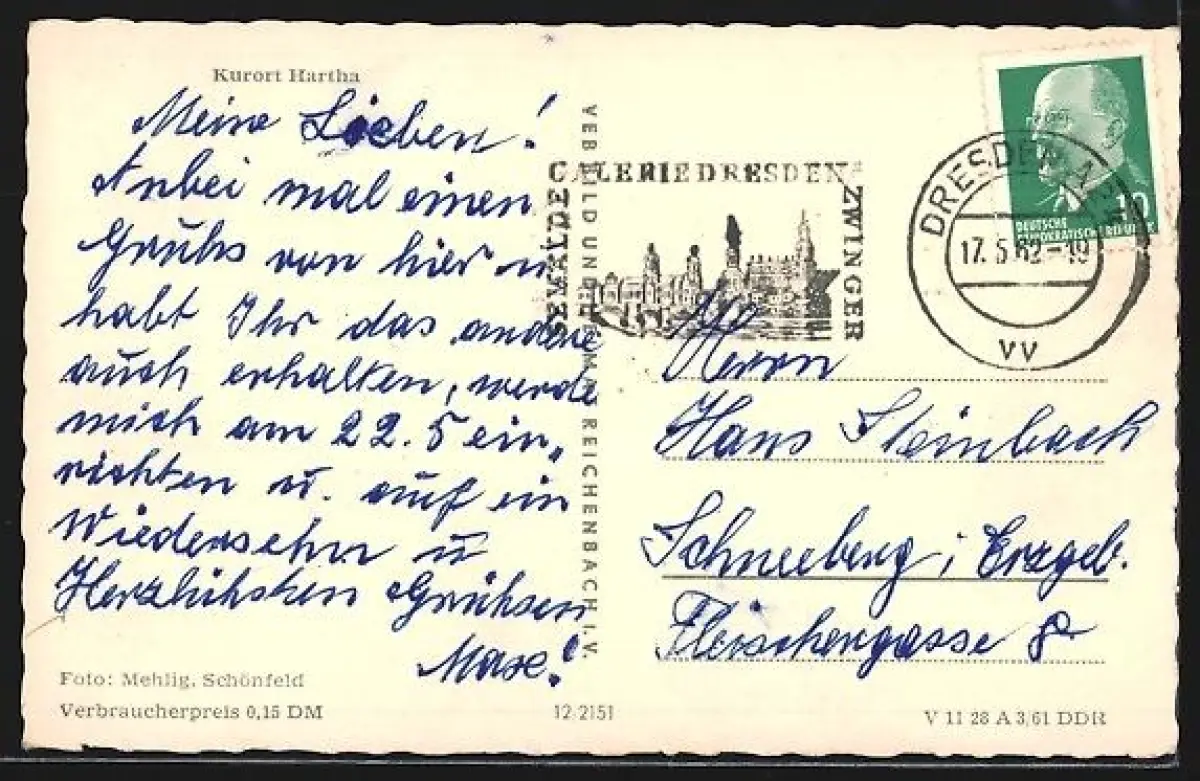 Kurort Hartha
Meine Lieben!
Anbei mal einen
Gruhs von hier u
habt Ihr das andere
auch erhalten, werde
mich am 22. 5 ein,,
richten u. auf ein
Wiedersehn u
Herzlichsten Grühsen
Max!
Foto: Mehlig, Schönfeld
Verbraucherpreis 0,15 DM
VEB BILD UND HEIMAT REICHENBACH I. V.
12 2151
GEMÄLDE
GALERIE DRESDEN
ZWINGER
DRESDEN A
17.5.62-19
vv
10
DEUTSCHE
DEMOKRATISCHE REPUBLIK
Herrn
Hans Steinbach
Schneeberg i Erzgeb.
Fleischergasse 8
V 11 28 A 3/61 DDR